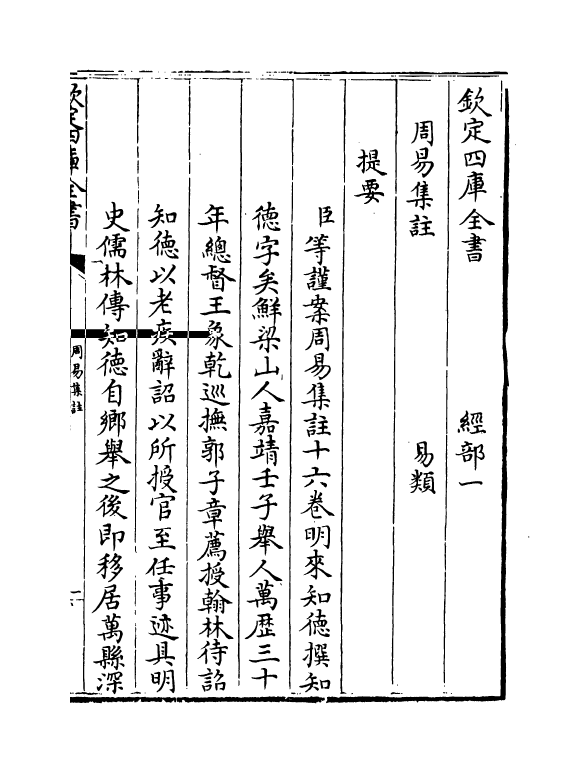 欽定四庫全書　經部一
周易集註　易類
提要
臣等謹案周易集註十六卷明來知德撰知
德字矣鮮梁山人嘉靖壬子舉人萬歷三十
年總督王象乾巡撫郭子章薦授翰林待詔
知德以老疾辭詔以所授官至任事迹具明
史儒林傳知德自鄉舉之後即移居萬縣深
欽定四庫全書
周易集註